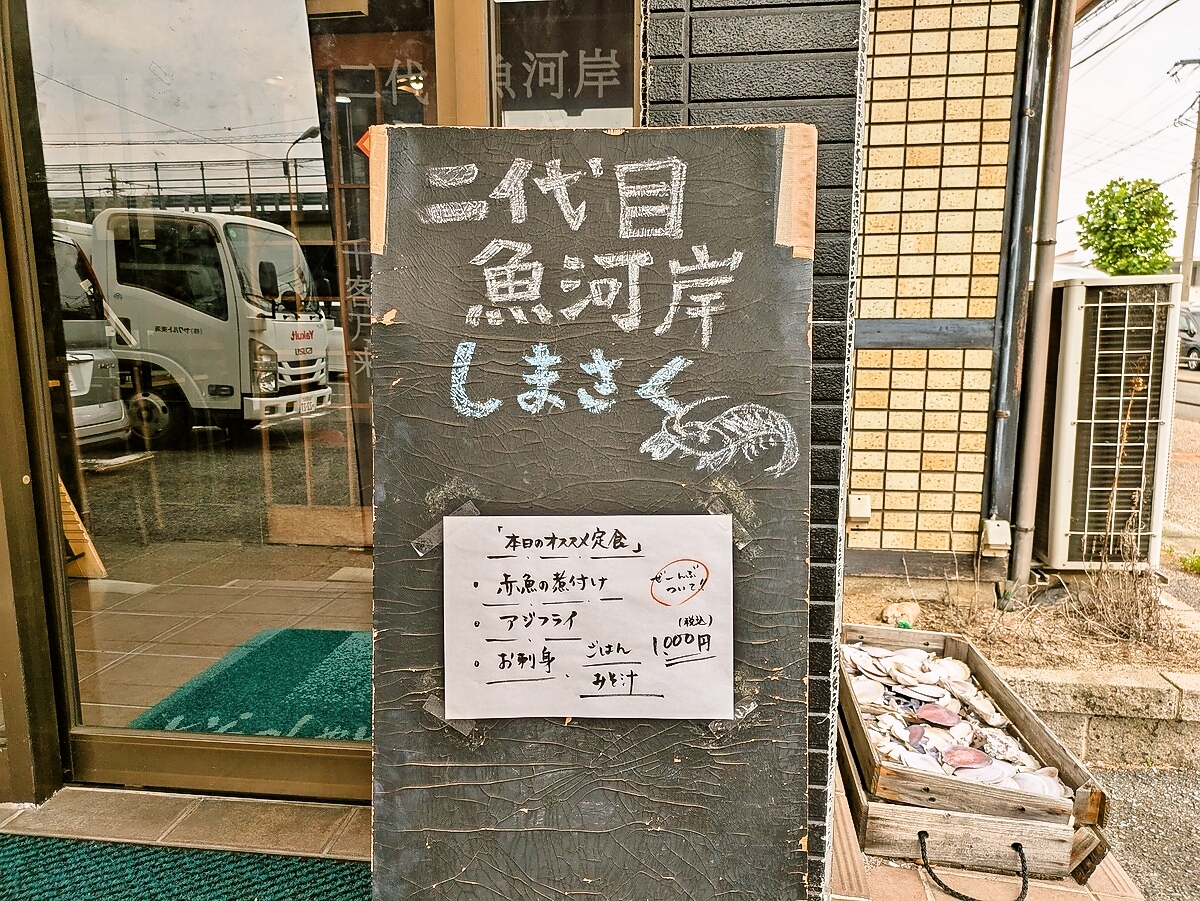 二代 魚河岸
二代目
魚河岸
しまさく
「本日のオススメ定食」
・赤魚の煮付け
・アジフライ
・お刺身
ごはん
みそ汁
ぜーんぶ
ついて!!
(税込)
1,000円
千客万来
(株)ヤクルト東海
Yakult
ISUZU